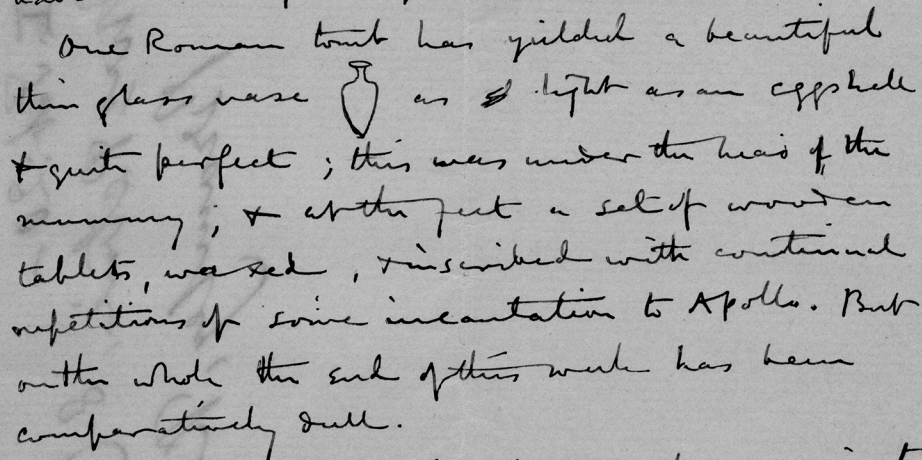 One Roman tomb has yielded a beautiful
thin glass vase as light as an eggshell
& quite perfect ; this was under the head of the
mummy ; & at the feet a set of wooden
tablets, waxed, & inscribed with continual
repetitions of some incantation to Apollo. But
on the whole the end of this week has been
comparatively dull.